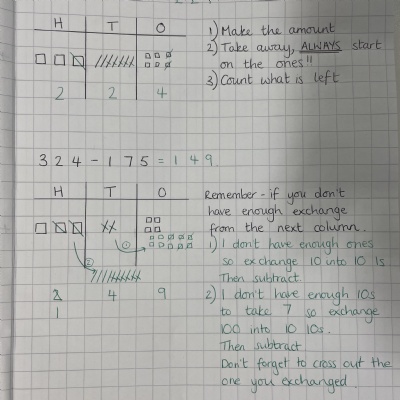 H T O
2 2 4
1) Make the amount
2) Take away, ALWAYS start
on the ones"
3) Count what is left
324 - 175 = 149
H T O
① 
②
2 4 9
1
Remember - if you don't
have enough exchange
from the next column.
1) I don't have enough ones
so exchange 10 into 10 1s
Then subtract
2) I don't have enough 10s
to take 7 so exchange
100 into 10 10s.
Then subtract
Don't forget to cross out the
one you exchanged.